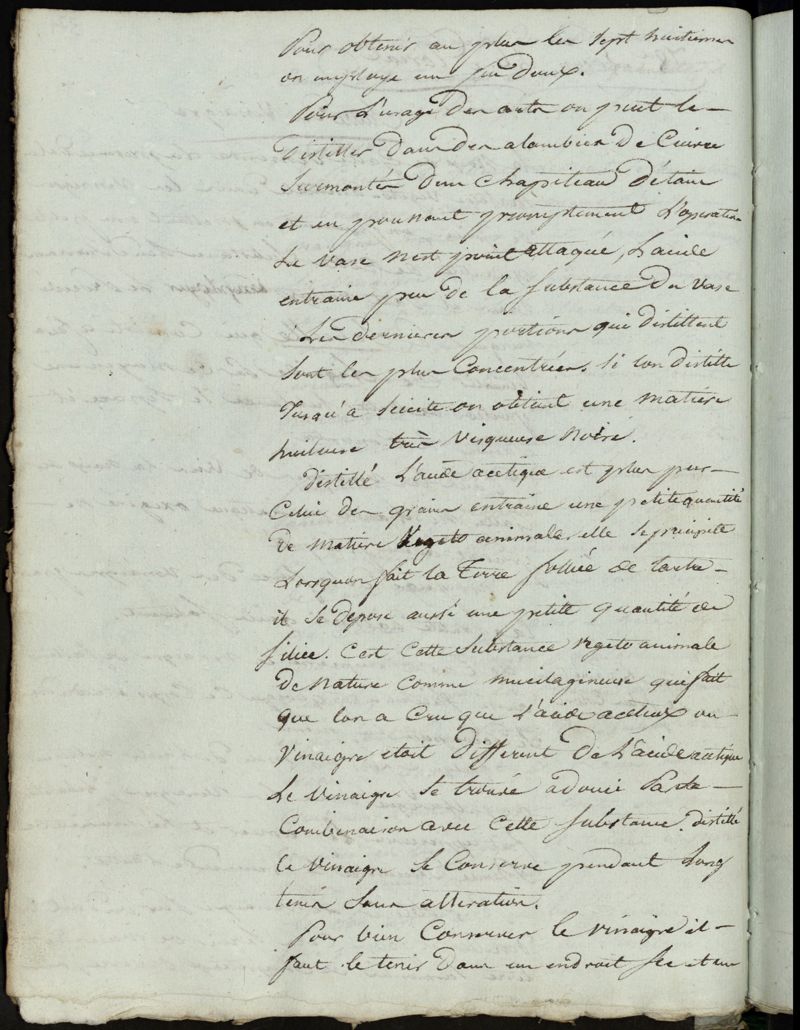 Pour obtenir au plus les sept huitiemes
on employe un feu doux.
Pour l'usage des arts on peut le
distiller dans des alambics de Cuivre
surmontés d'un chapiteau d'étain
et en poussant promptement l'operation
le vase n'est point attaqué, l'acide
entraine peu de la substance du vase
les dernieres portions qui distillent
sont les plus concentrées. si l'on distille
jusqu'à siccité on obtient une matiere
huileuse très visqueuse noire.
distillé l'acide acetique est plus pur
Celui des grains entraine une petite quantité
de matiere vegeto animale, elle se precipite
lorsqu'on fait la terre foliée de tartre
il se depose aussi une petite quantité de
silice. c'est cette substance vegeto animale
de nature comme mucilagineuse qui fait
que l'on a cru que l'acide aceteux ou
vinaigre etoit different de l'acide acetique
le vinaigre se trouve adouci par la
combinaison avec cette substance. distillé
le vinaigre se conserve pendant long
tems sans alteration.
Pour bien conserver le vinaigre il
faut le tenir dans un endroit sec et en